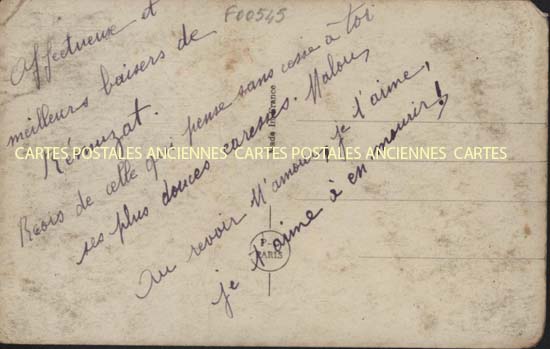 F00545
Affectueux et
meilleurs baisers de
Reçois de celle qui pense sans cesse à toi
ses plus douces caresses. Malou,
Au revoir M'amour, je t'aime,
je t'aime à en mourir!
Made In France
P-C
PARIS
CARTES POSTALES ANCIENNES CARTES POSTALES ANCIENNES CARTES